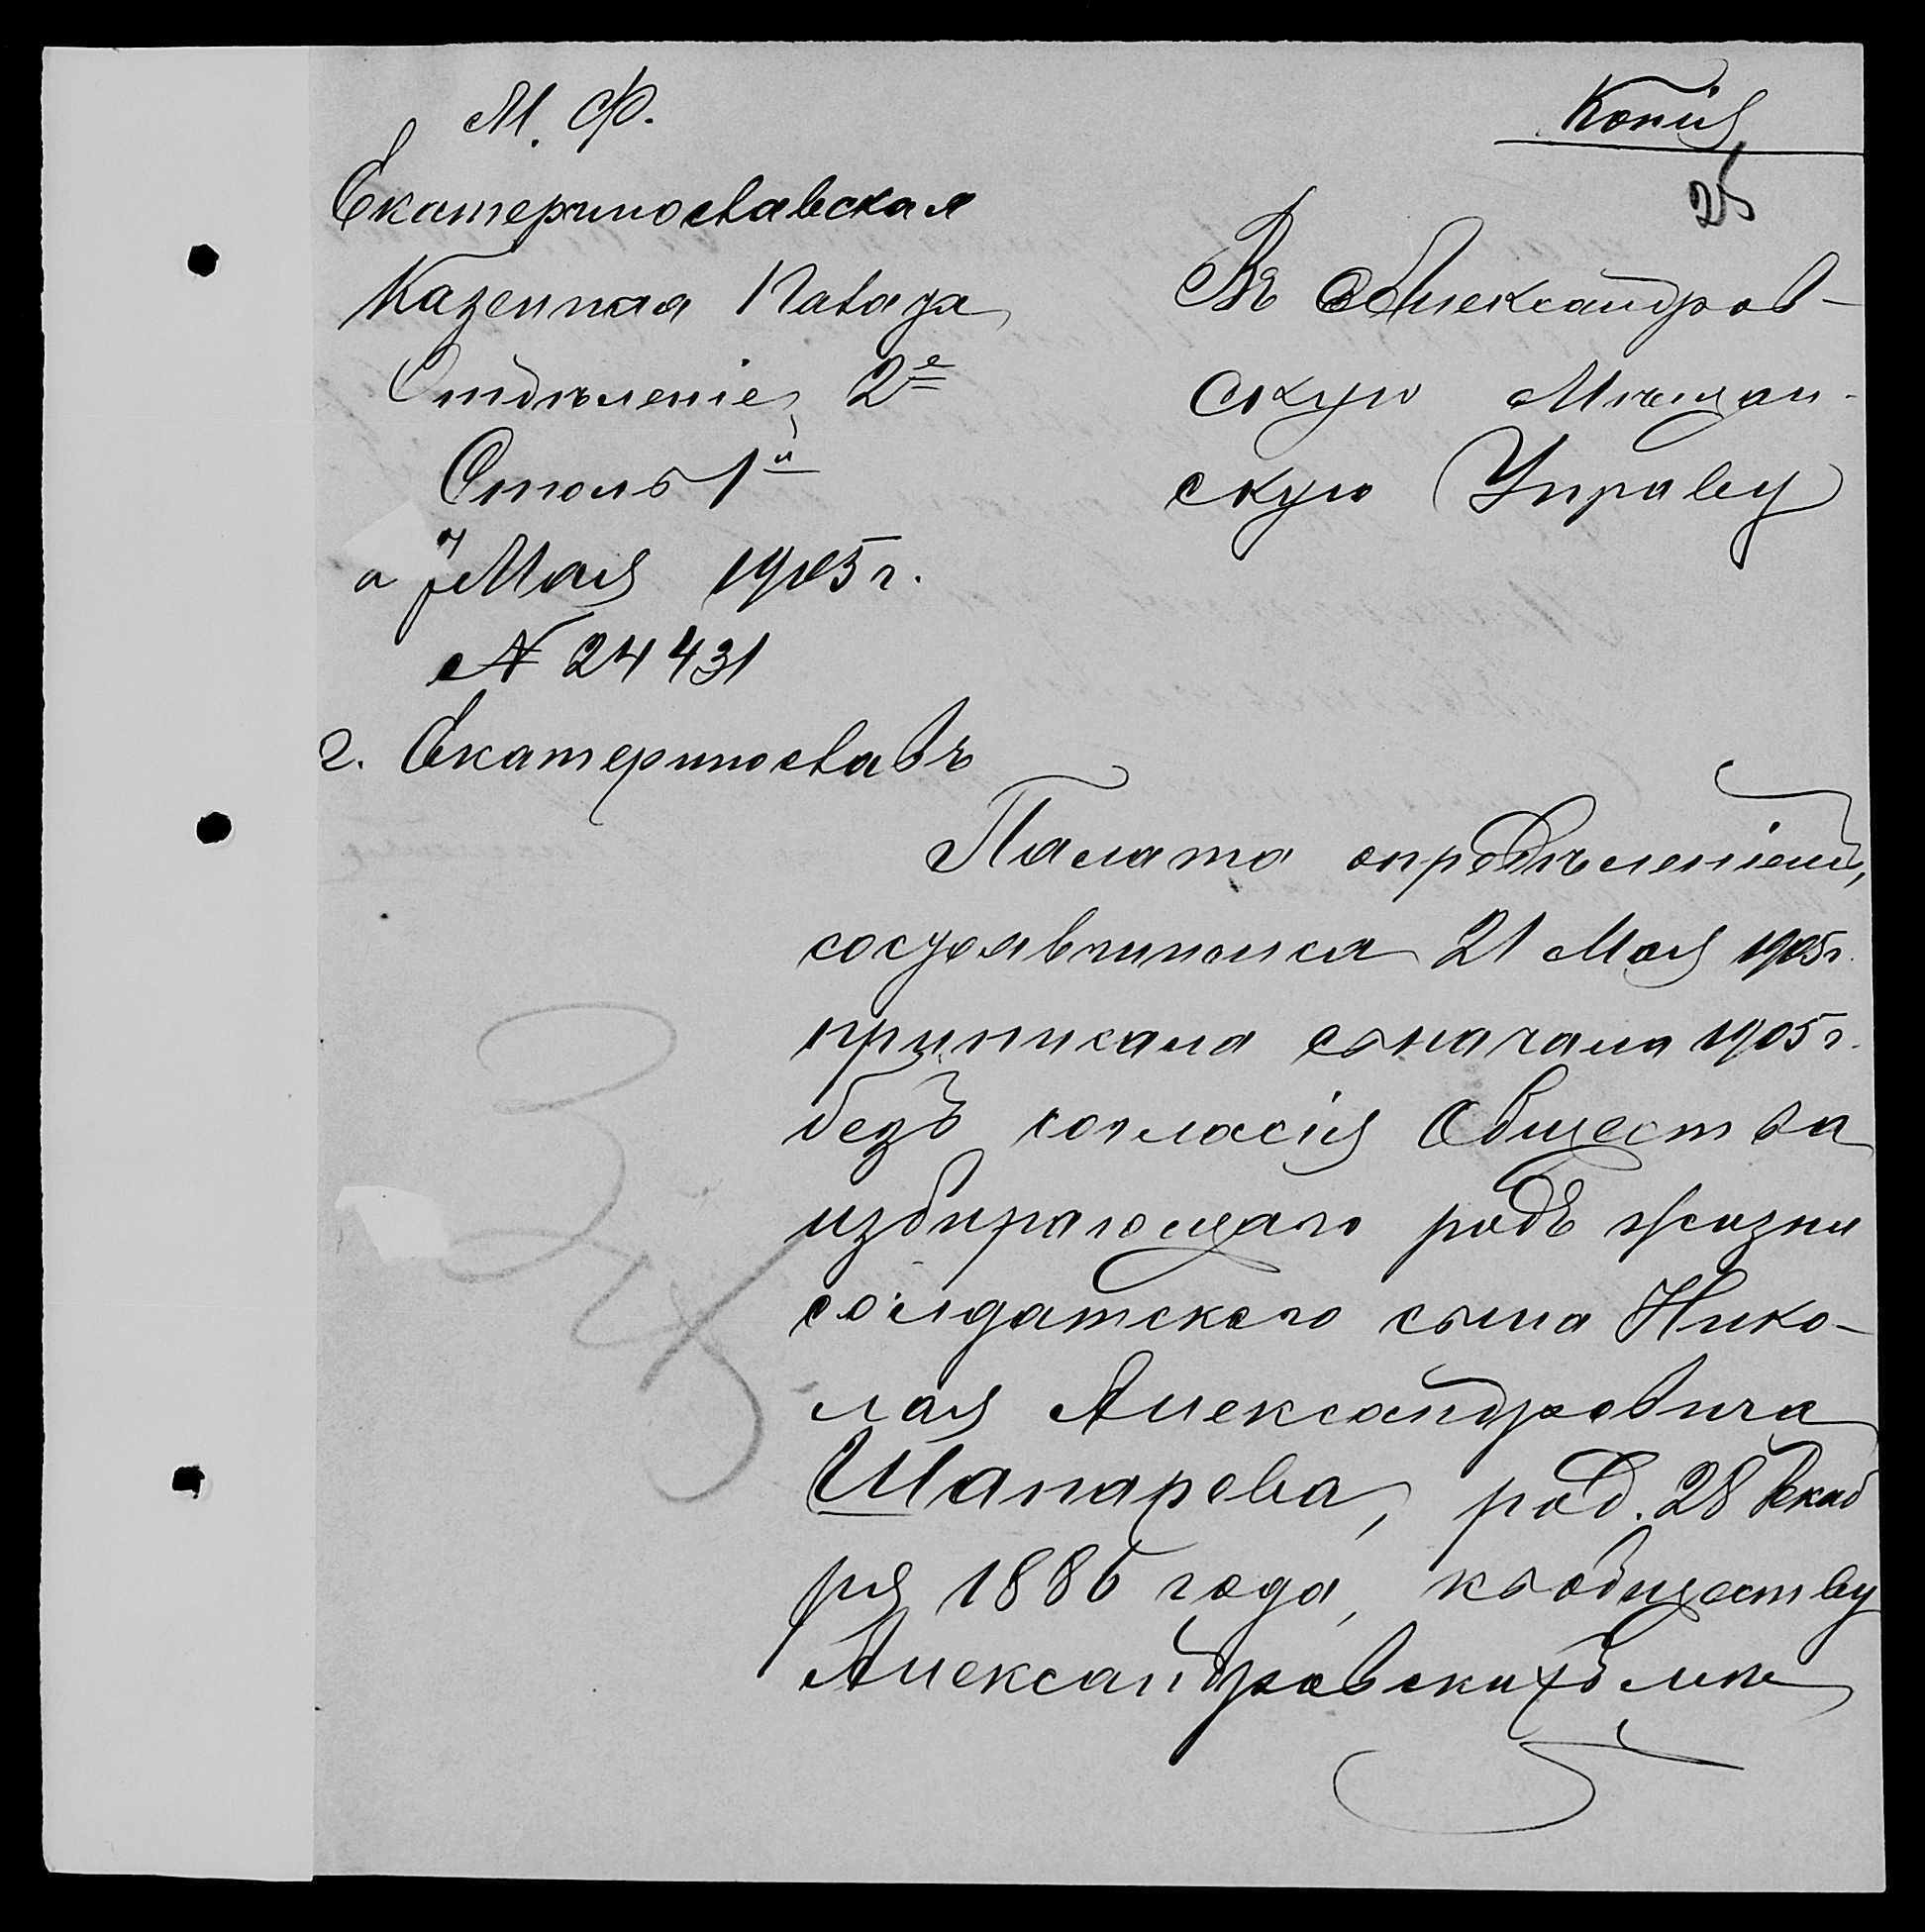 М. Ф.
Екатеринославская
Казенная Палата
Отдѣленіе 2е
Столъ 1й
Мая 1905 г.
№ 24431
г. Екатеринославъ
Копія
25
Въ Александров-
скую Мѣщан-
скую Управу
Палата опредѣленіемъ,
состоявшимся 21 Мая 1905 г.
приписала съ начала 1905 г.
безъ согласія Общества
избирающаго родъ жизни
солдатского сына Нико-
лая Александровича
Шапарева, род. 28 Декаб
ря 1886 года, къ обществу
Александровскихъ мѣ